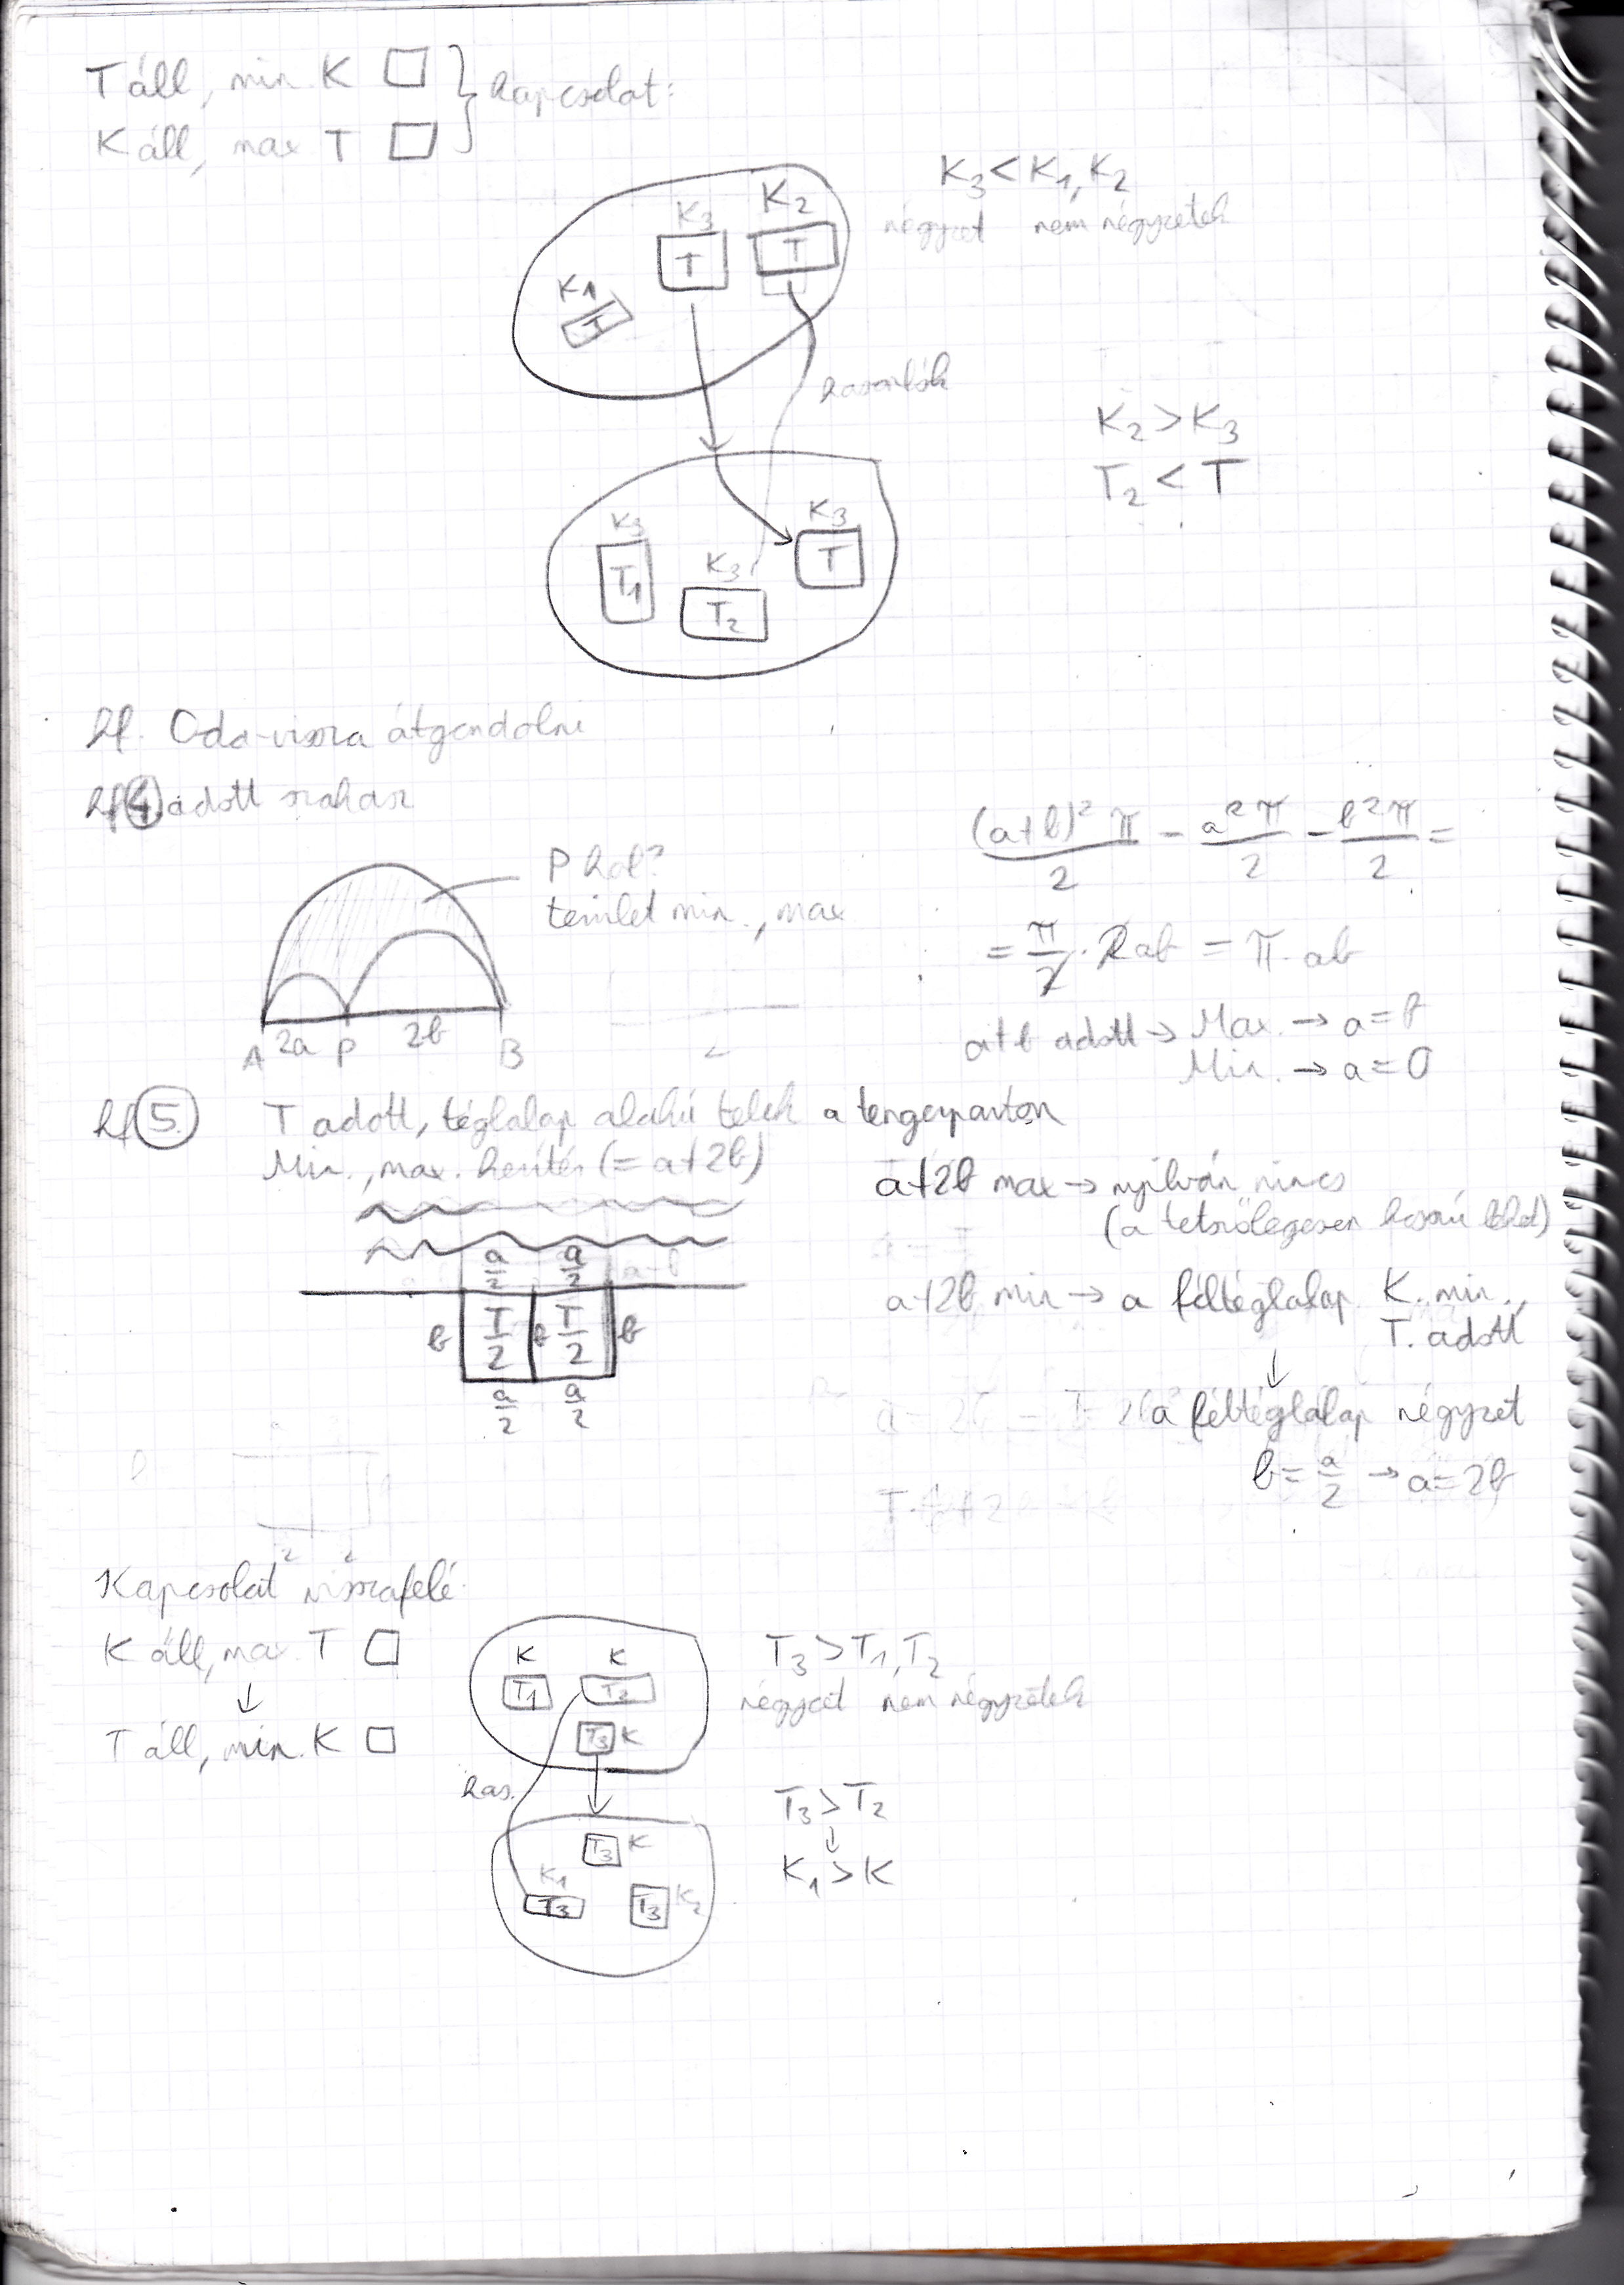 T áll, min. K □ } Kapcsolat:
K áll, max T □
K₃ < K₁, K₂
négyzet nem négyzetek
K₁ T
K₃ T
K₂ T
hasonlók
K₂ > K₃
T₂ < T
K₃ T₁
K₃ T₂
K₃ T
Hf. Oda-vissza átgondolni
Hf ④ adott szakasz
P hol?
terület min., max
A 2a P 2b B
(a+b)²π/2 - a²π/2 - b²π/2 =
= π/2 · 2ab = π·ab
a+b adott → Max. → a=b
Min. → a=0
Hf ⑤ T adott, téglalap alakú telek a tengerparton
Min., max. kerítés (= a+2b)
a/2 a/2
b T/2 b T/2 b
a/2 a/2
a+2b max → nyilván nincs
(a tetszőlegesen hosszú lehet)
a+2b min → a féltéglalap K. min.,
T. adott
↓
a féltéglalap négyzet
b = a/2 → a=2b
Kapcsolat visszafelé:
K áll, max. T □
↓
T áll, min. K □
K T₁
K T₂
T₃ K
T₃ > T₁, T₂
négyzet nem négyzetek
has.
T₃ K
K₁ T₃
T₃ K₂
T₃ > T₂
↓
K₁ > K